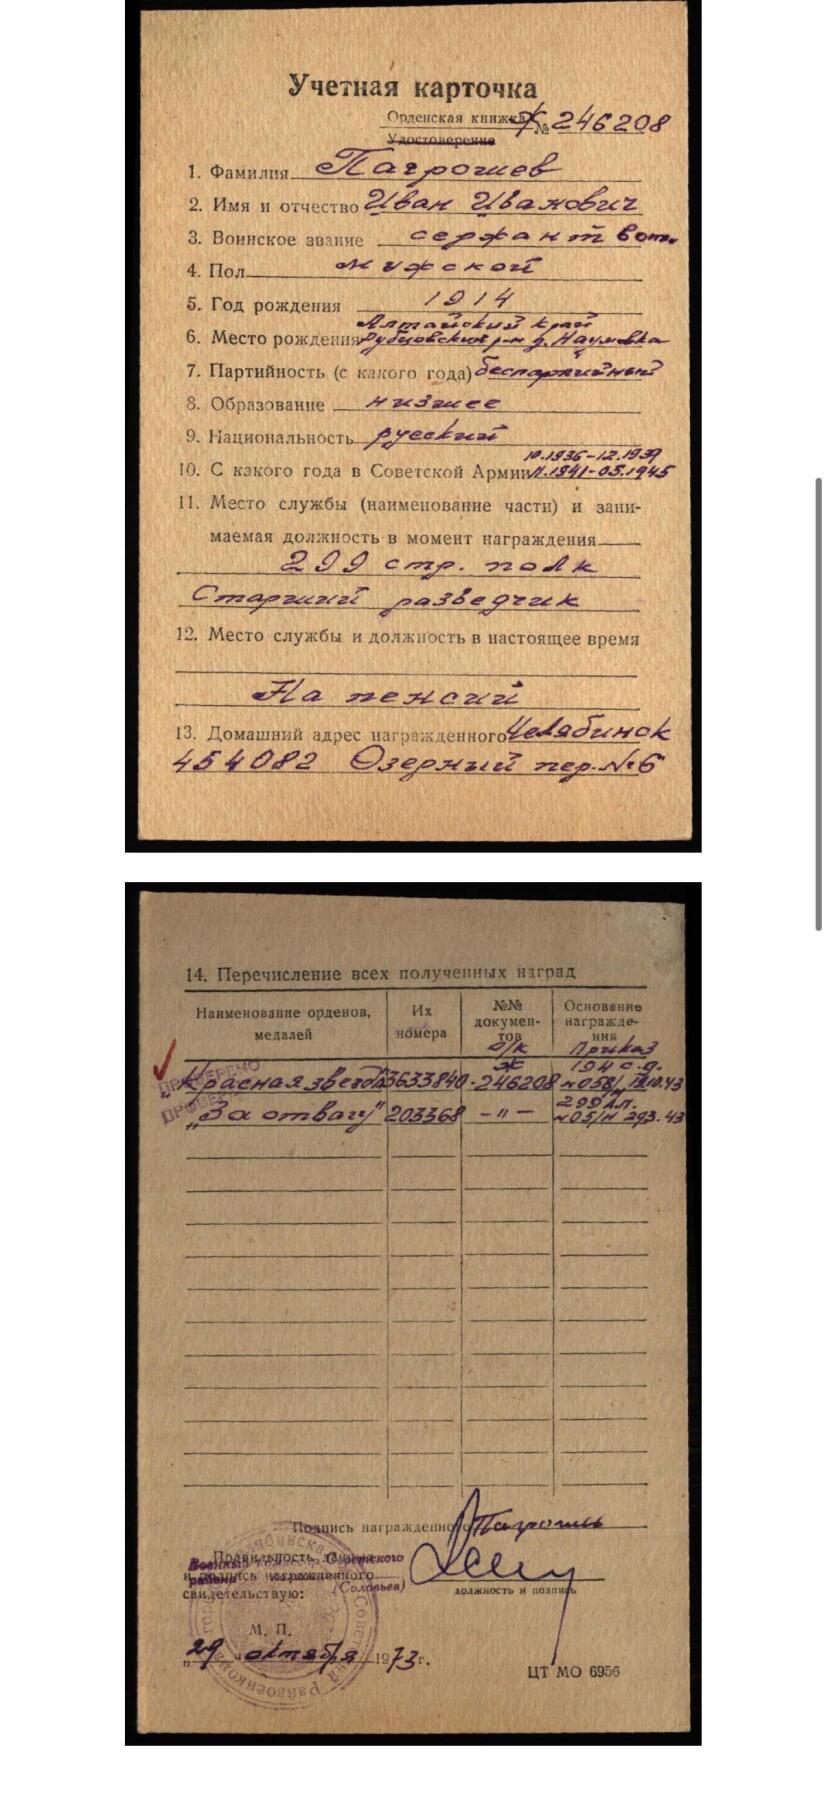 Учетная карточка
Орденская книжка Ж № 246208
Удостоверение
1. Фамилия Патрошев
2. Имя и отчество Иван Иванович
3. Воинское звание сержант в от.
4. Пол мужской
5. Год рождения 1914
Алтайский край
6. Место рождения Рубцовский р-н д. Наумовка
7. Партийность (с какого года) беспартийный
8. Образование низшее
9. Национальность русский
10.1936-12.1939
10. С какого года в Советской Армии 11.1941-05.1945
11. Место службы (наименование части) и зани-
маемая должность в момент награждения
299 стр. полк
Старший разведчик
12. Место службы и должность в настоящее время
На пенсий
13. Домашний адрес награжденного Челябинск
454082 Озерный пер. №6
14. Перечисление всех полученных наград
Наименование орденов, медалей
Их номера
№№ документов
Основание награждения
о/к Приказ
Ж 194 с.д.
ПРОВЕРЕНО
„Красная звезда" 3633840 -246208 №058/
ПРОВЕРЕНО
299 п.
„За отвагу" 203368 -"- №05/н 29.3.43
Подпись награжденного
Правильность
и подпись награжденного
района
(Соловьев)
свидетельствую:
должность и подпись
М. П.
„29" октября 1973 г.
ЦТ МО 6956